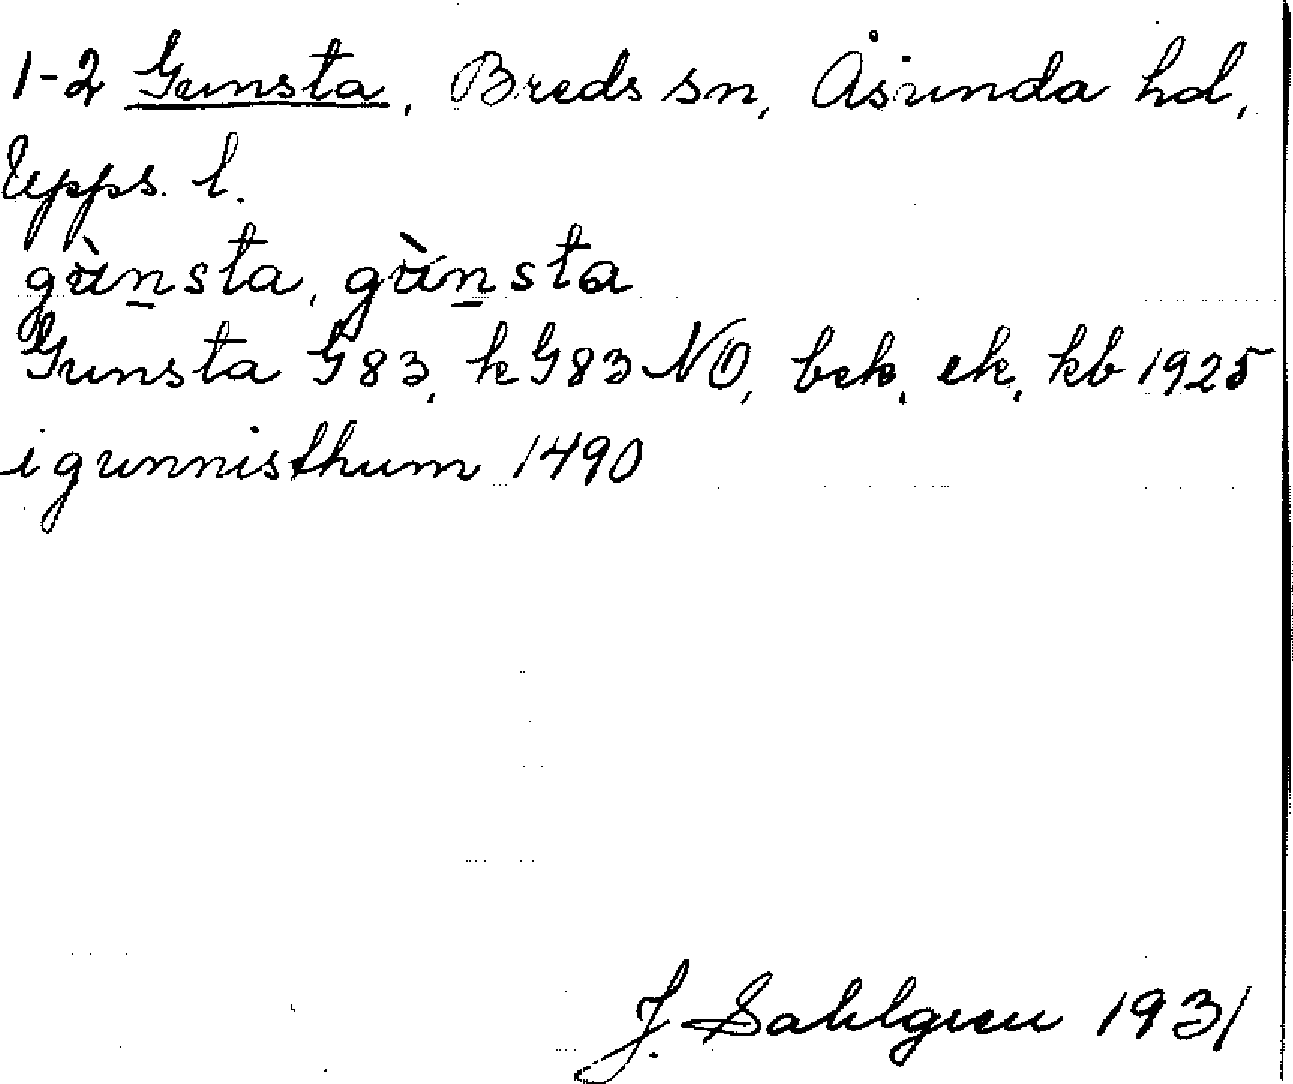 1-2 Gunsta, Breds sn, Åsunda hd,
Upps. l.
gùn̲sta, gùn̲sta
Gunsta G83, k G83 NO, bek, ek, kb 1925
i gunnisthum 1490
J. Sahlgren 1931